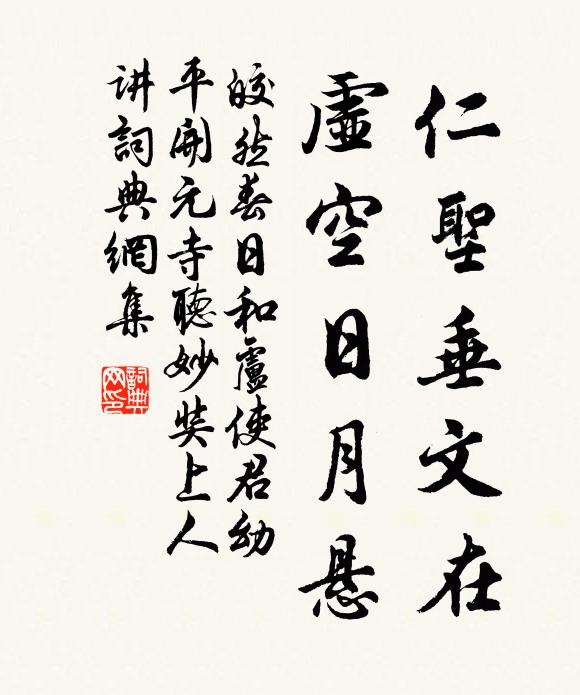 仁聖垂文在
虛空日月懸
皎然春日和盧使君幼
平開元寺聽妙奘上人
讲詞典網集
詞典网印